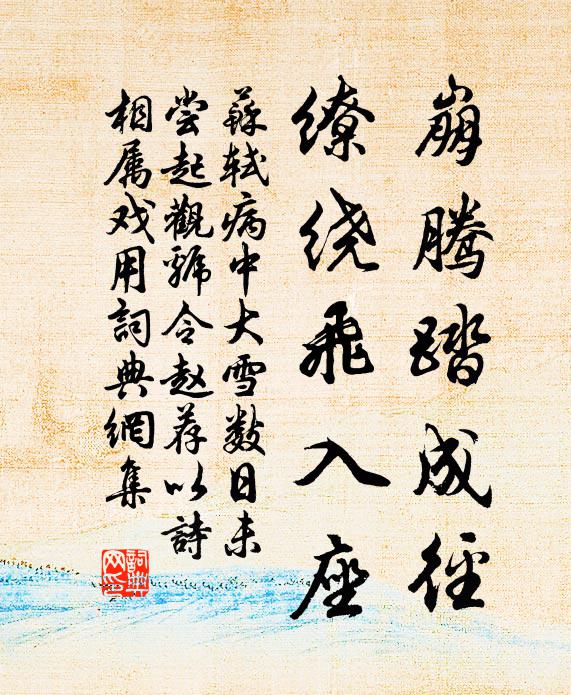 崩腾踏成径
缭绕飛入座
蘇轼病中大雪数日未
尝起觀虢令赵荐以詩
相属戏用詞典網集